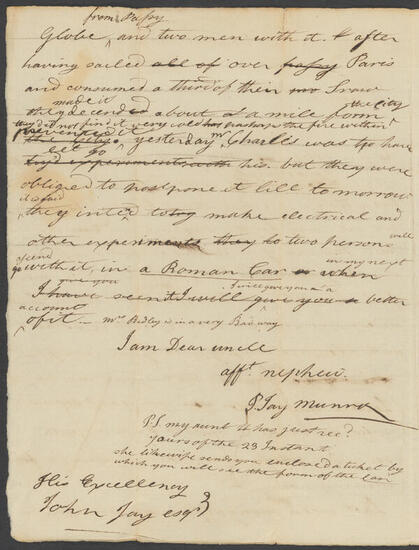 from Passy
Globe, and two men with it. & after
having sailed all of over passy Paris
and consumed a third of their Straw
made it the City
they decend about a mile from
they did not find it very cold perhaps the fire within
prevented it
yesterday Mr Charles was to have
let go
try'd experiments with his. but they were
obliged to postpone it till to morrow
it is said
they inted to make electrical and
other experiments they to two persons will
ascend
go with it, in a Roman Car or when in my next
give you I will give you a
I have seen it I will give you a better
account
of it. Mr Ridley is in a very Bad way
I am Dear uncle
afft. nephew.
P Jay Munro
P.S. my aunt has just recd
yours of the 23 Instant
she likewise sends you enclosed a ticket by
which you will see the form of the Car
His Excellency
John Jay esqr